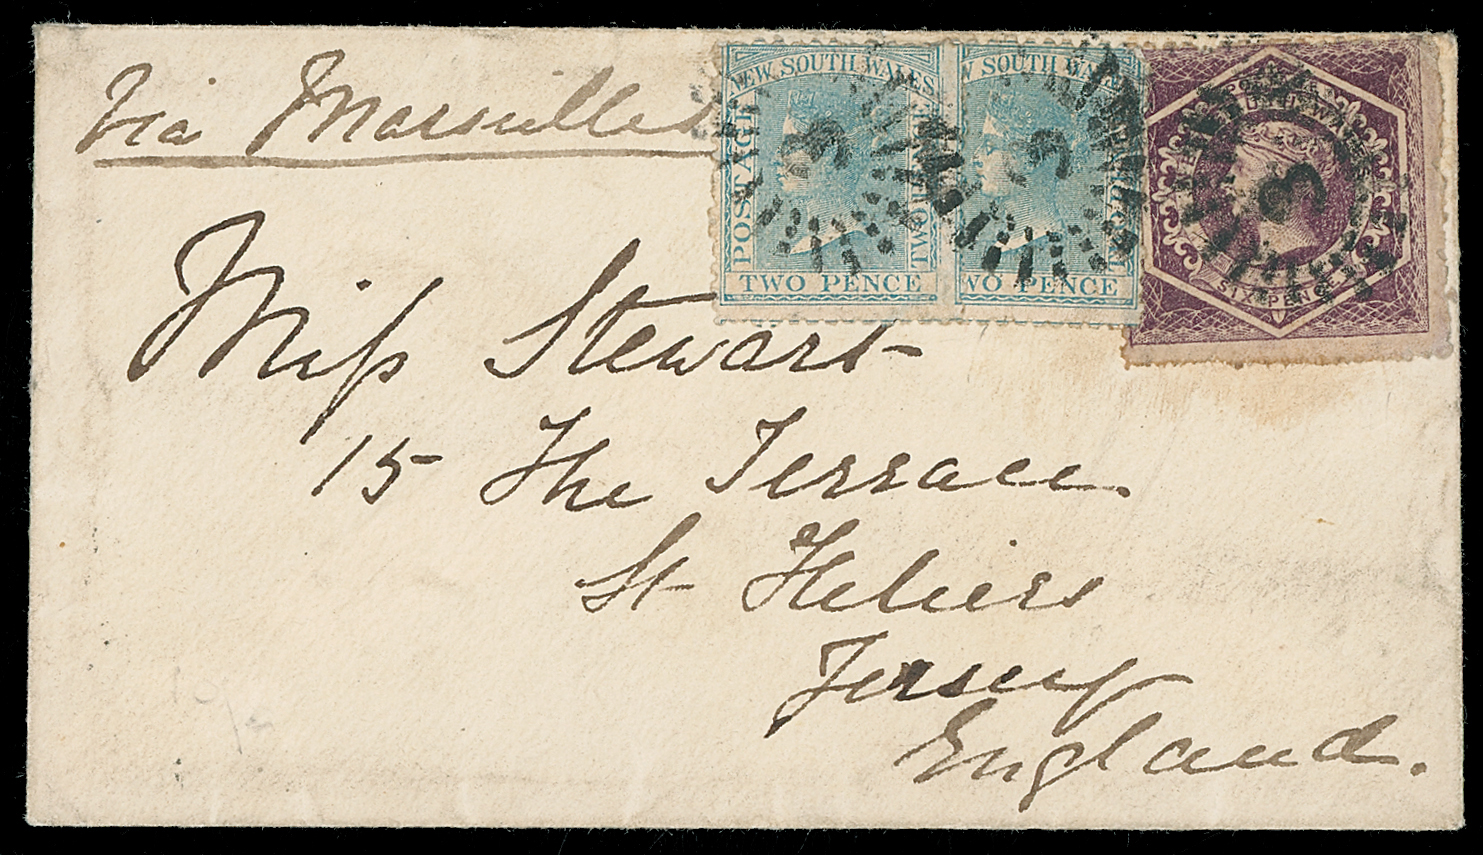 Via Marseilles
NEW SOUTH WALES
POSTAGE
TWO PENCE
TWO PENCE
3
W SOUTH WALES
WO PENCE
3
SIXPENCE
3
Miss Stewart
15 The Terrace.
St Heliers
Jersey
England.